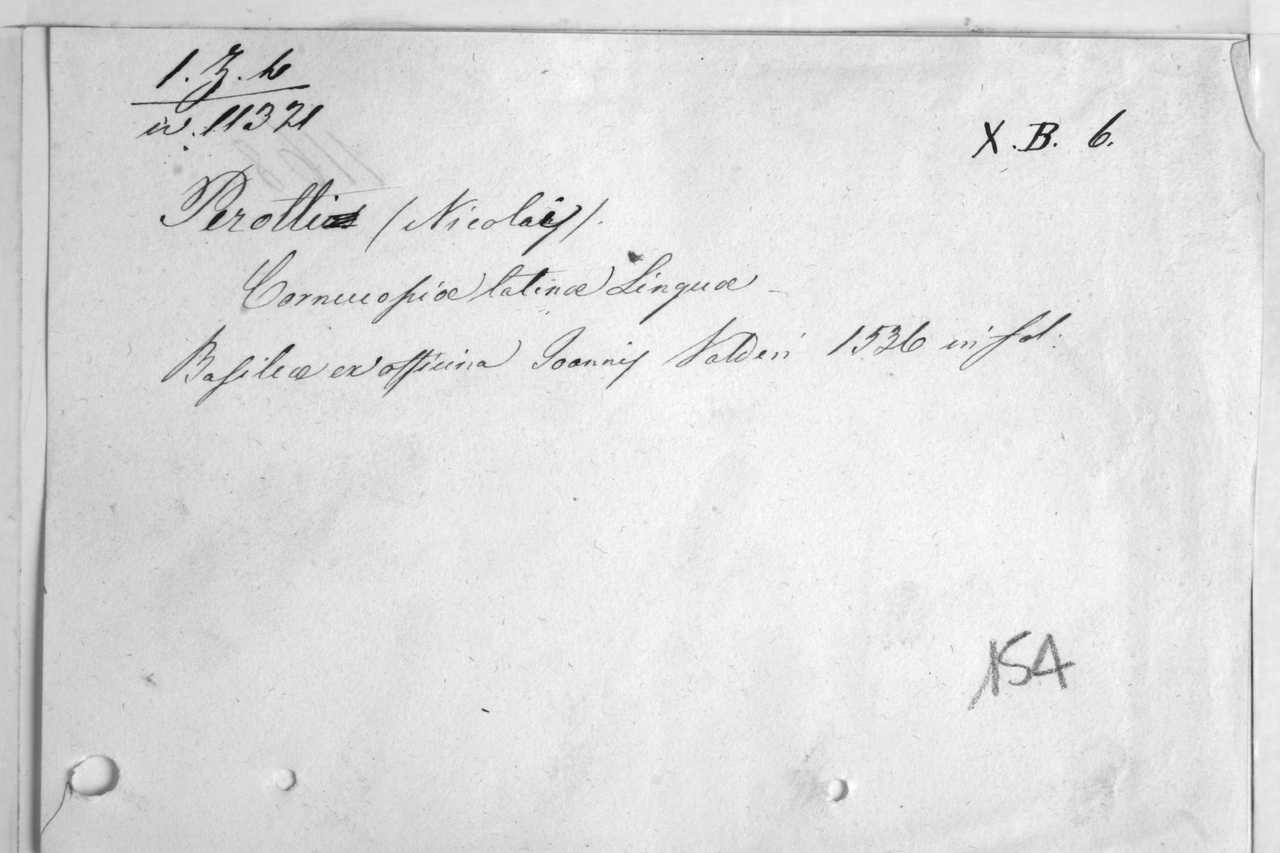 1. Z. b
w. 11321
X. B. 6.
Perotti (Nicolai).
Cornucopiæ latinæ Linguæ
Basileæ ex officina Joannis Valderi 1536 in fol:
154